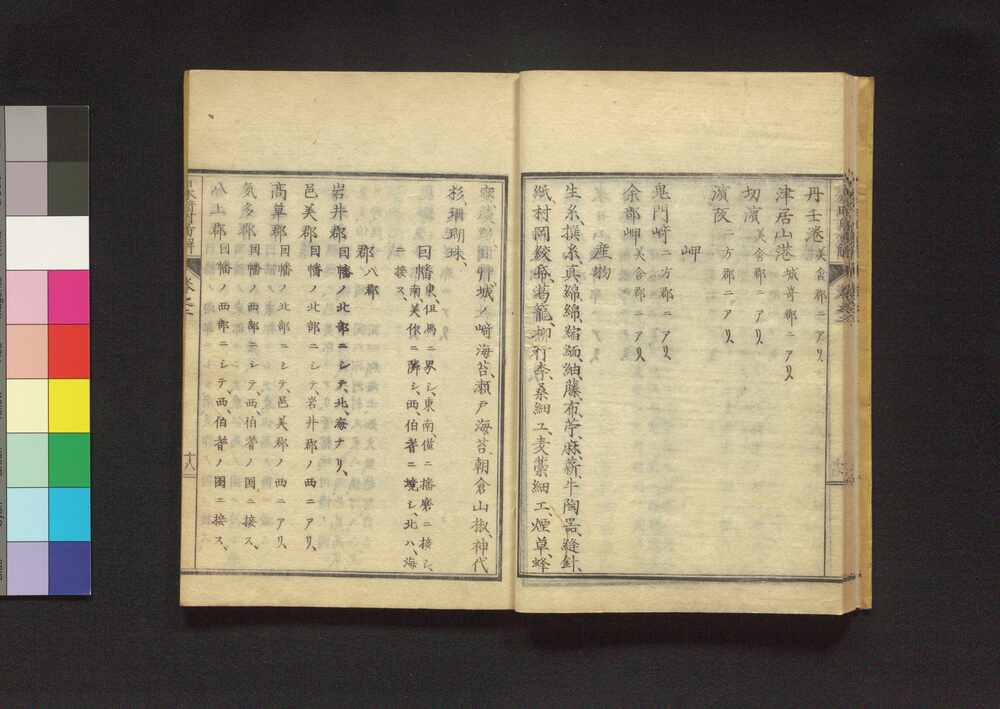 丹士港 美含郡ニアリ
津居山港 城崎郡ニアリ
切濱 美含郡ニアリ
濱阪 二方郡ニアリ
岬
鬼門﨑 二方郡ニアリ
余部岬 美含郡ニアリ
産物
生糸、撰糸、真綿、綿、縮緬、紬、藤布、苧、麻、薪、牛、陶器、縫針、
紙、村岡絞、葛籠、柳行李、桑細工、麦藁細工、煙草、蜂
城ノ﨑海苔、瀬戸海苔、朝倉山椒、神代
杉、珊瑚珠、
因幡 東、但馬ニ界シ、東南、僅ニ播磨ニ接シ、
南、美作ニ隣シ、西、伯耆ニ境シ、北ハ、海
ニ接ス、
郡 八郡
岩井郡 因幡ノ北部ニシテ、北、海ナリ、
邑美郡 因幡ノ北部ニシテ、岩井郡ノ西ニアリ、
高草郡 因幡ノ北部ニシテ、邑美郡ノ西ニアリ、
気多郡 因幡ノ西部ニシテ、西、伯耆ノ国ニ接ス、
八上郡 因幡ノ西部ニシテ、西、伯耆ノ国ニ接ス、
十八